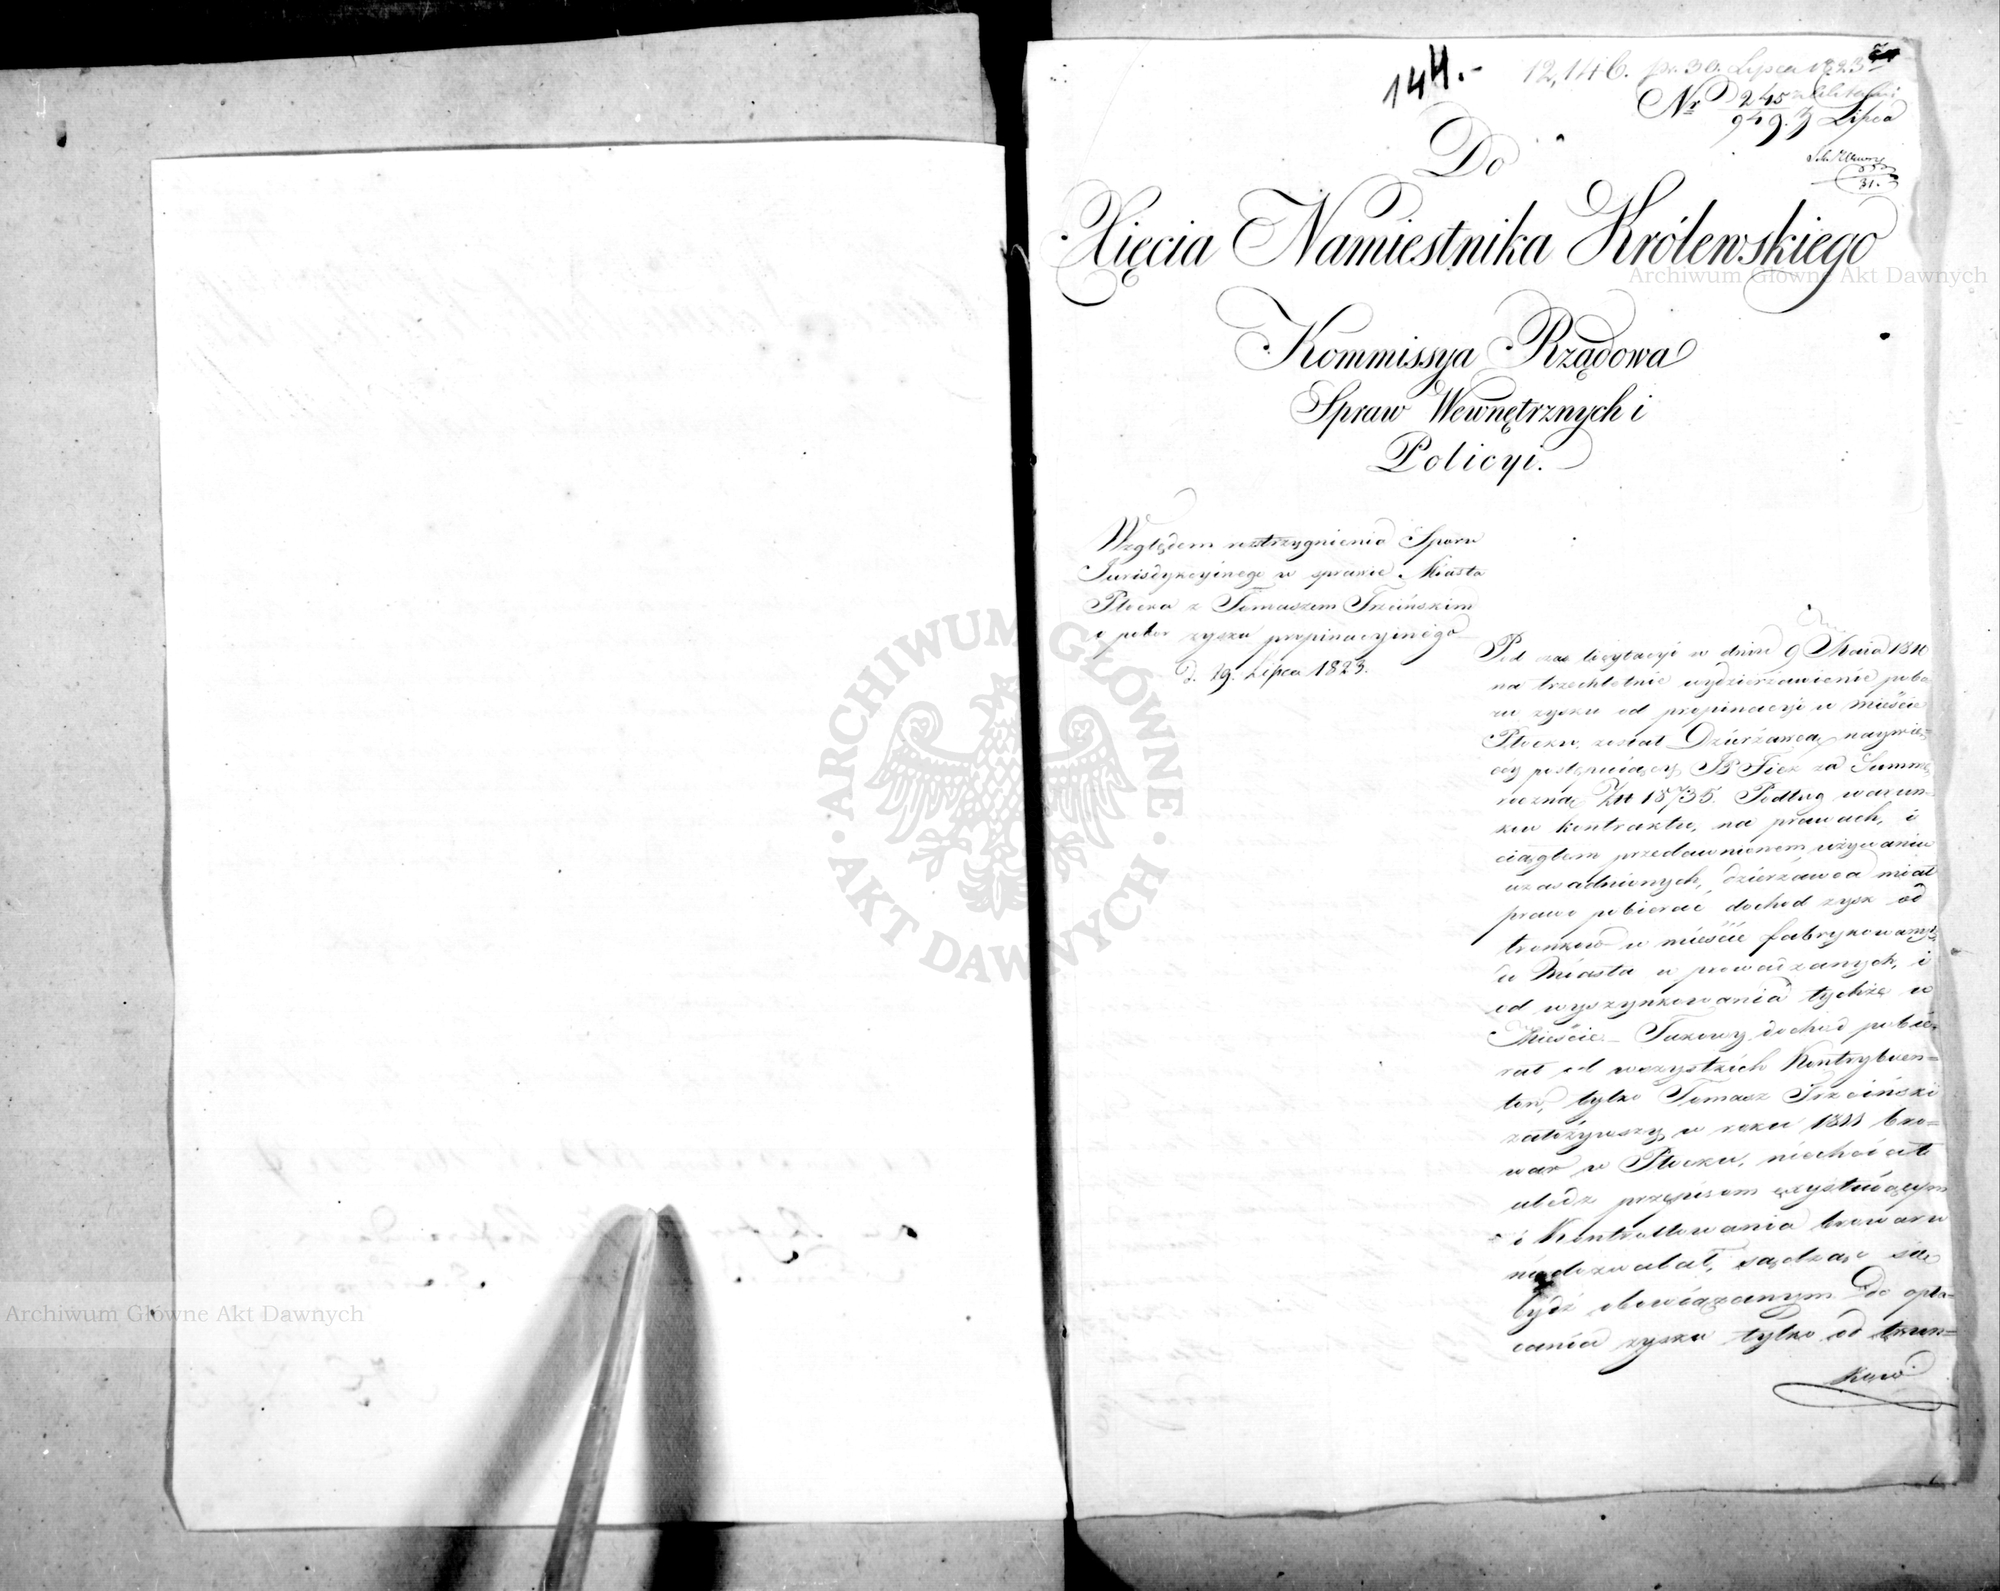 144.-
12,146. pr. 30. Lipca 1823
Nr 245
949. 3 Lipca
31.
Do
Xięcia Namiestnika Królewskiego
Kommissya Rządowa
Spraw Wewnętrznych i
Policyi.
Względem rozstrzygnienia Sporu
Jurisdykcyinego w sprawie Miasta
Płocka z Tomaszem Trzcińskim
o pobor zysku propinacyinégo
d. 29. Lipca 1823.
Pod czas licytacyi w dniu 9 Maia 1810
na trzechletnie wydzierżawienie pobo-
ru zysku od propinacyi w mieście
Płocku, został Dzierżawcą naywię-
céy postępuiący za Summę
roczną Złt 18735. Podług warun-
ków kontraktu, na prawach, i
ciągłem przedawnionem używaniu
uzasadnionych, dzierżawca miał
prawo pobierać dochod zysk od
tronków w mieście fabrykowanych
do Miasta wprowadzanych, i
od wyszynkowania tychże w
Mieście - Takowy dochod pobie-
rał od wszystkich Kontrybuen-
tów, tylko Tomasz Trzciński
założywszy w roku 1811 bro-
war w Płocku, niechciał
uledz przepisom exystuiącym
i Kontrollowania browaru
niedozwalał, sądząc się
bydź obowiązanym do opła-
cania zysku tylko od trun-
ków
Archiwum Główne Akt Dawnych
Archiwum Główne Akt Dawnych
ARCHIWUM GŁÓWNE · AKT DAWNYCH ·